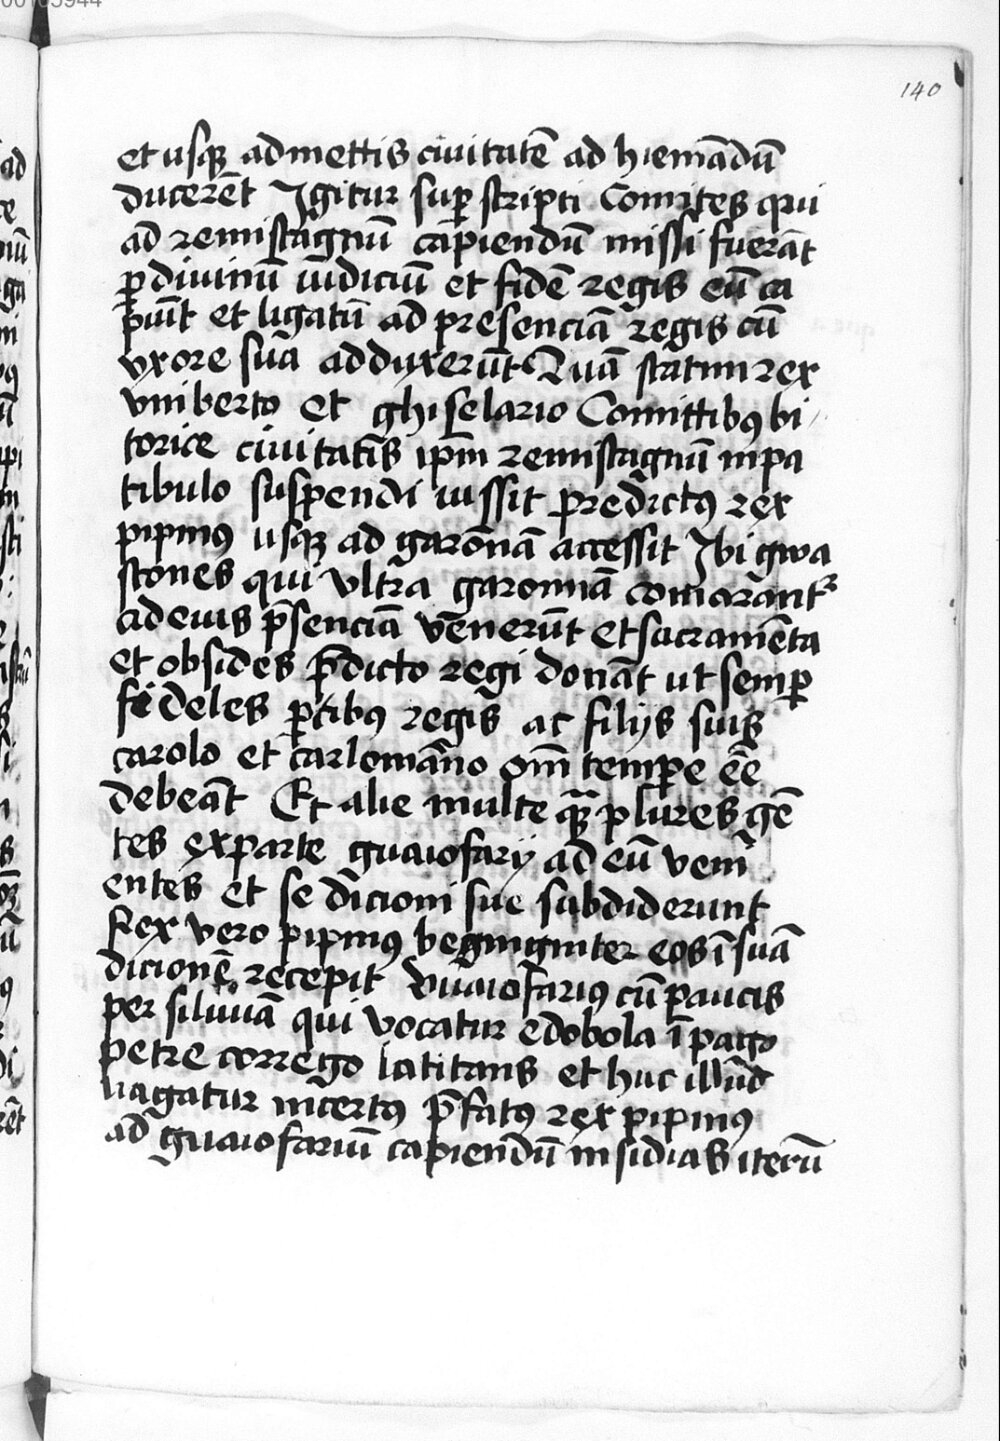 140
et usqꝫ ad mettis ciuitatē ad hiemādū
ducerēt Igitur suꝑ scripti Comites qui
ad remistagnū capiendū missi fuerāt
ꝑ diuinū iudiciū et fidē regis eū ca
piūt et ligatū ad presenciā regis cū
vxore sua adduxerūt Quā statim rex
vniberto et ghiselario Comitibꝯ bi
torice ciuitatis ip̄m remistagnū in pa
tibulo suspendi iussit predictꝯ rex
pipinꝯ usqꝫ ad garonnā accessit Ibi gwa
scones qui vltra garonnā comorantᷣ
ad eius p̄senciā venerūt et sacramēta
et obsides p̄dicto regi donāt ut semꝑ
fideles ꝑtibꝯ regis ac filijs suis
carolo et carlomāno om̄i temꝑe eē̄
debeāt Et alie multe qꝫ plures gē
tes ex parte guaiofarij ad eū veni
entes et se dicioni sue subdiderunt
Rex vero pipinꝯ begnigniter eos ī suā
dicionē recepit vuaiofariꝯ cū paucis
per siluuā qui vocatur edobola ī pago
petre corrego latitans et huc illud
uagatur incertꝯ p̄fatꝯ rex pipinꝯ
ad guaiofariū capiendū insidias iterū